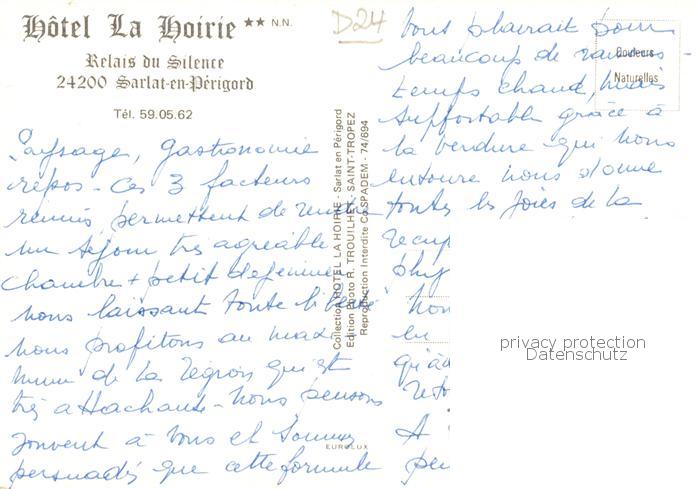 Hôtel La Hoirie ** N.N.
Relais du Silence
24200 Sarlat-en-Périgord
Tél. 59.05.62
D24
Paysage, gastronomie
repos - ces 3 facteurs
réunis, permettent de rendre
un séjour très agréable
chambre + petit déjeuner
nous laissant toute liberté
nous profitons au maxi
mum de la région qui est
très attachante - Nous pensons
souvent à vous et sommes
persuadés que cette formule
Collection HOTEL LA HOIRIE - Sarlat en Périgord
Edition Photo R. TROUILHET - SAINT-TROPEZ
Reproduction Interdite Co SPADEM - 74/694
EUROLUX
Couleurs
Naturelles
vous plairait pour
beaucoup de raisons -
temps chaud, mais
supportable grâce à
la verdure qui nous
entoure nous donne
toutes les joies de la
récup
phy
non
en
qu'à
A
peu
privacy protection
Datenschutz